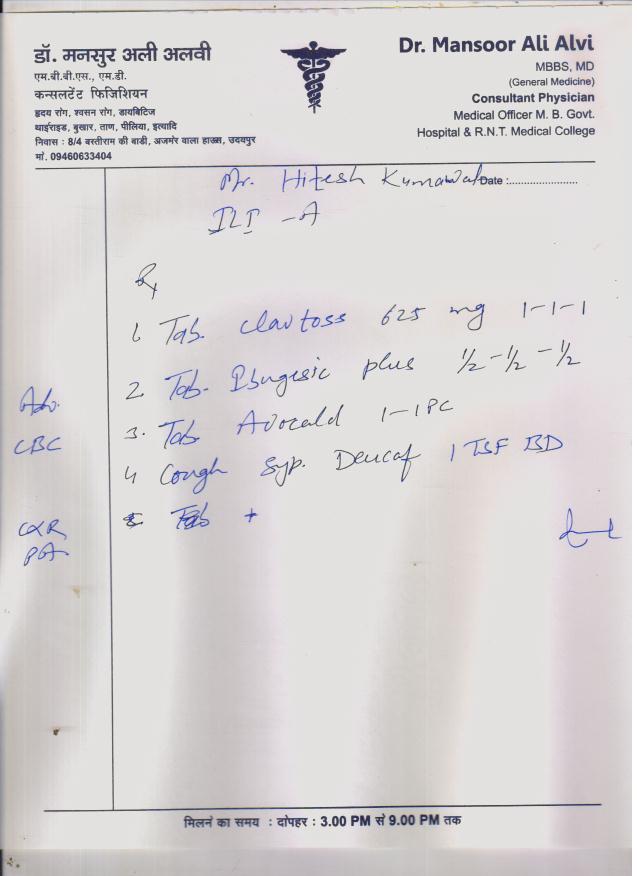 डॉ. मनसुर अली अलवी
एम.बी.बी.एस., एम.डी.
कन्सलटेंट फिजिशियन
हृदय रोग, श्वसन रोग, डायबिटिज
थाईराइड, बुखार, ताण, पीलिया, इत्यादि
निवास : 8/4 बस्तीराम की बाडी, अजमेर वाला हाउस, उदयपुर
मो. 09460633404
Dr. Mansoor Ali Alvi
MBBS, MD
(General Medicine)
Consultant Physician
Medical Officer M. B. Govt.
Hospital & R.N.T. Medical College
Mr. Hitesh Kumawat Date :........................
ILI - A
Rx
1. Tab. Clavtoss 625 mg 1-1-1
2. Tab. Ibugesic plus ½-½-½
3. Tab. Avocald 1-1 PC
4 Cough Syp. 1 TSF BD
5. Tab +
Adv.
CBC
CXR
PA
मिलने का समय : दोपहर : 3.00 PM से 9.00 PM तक